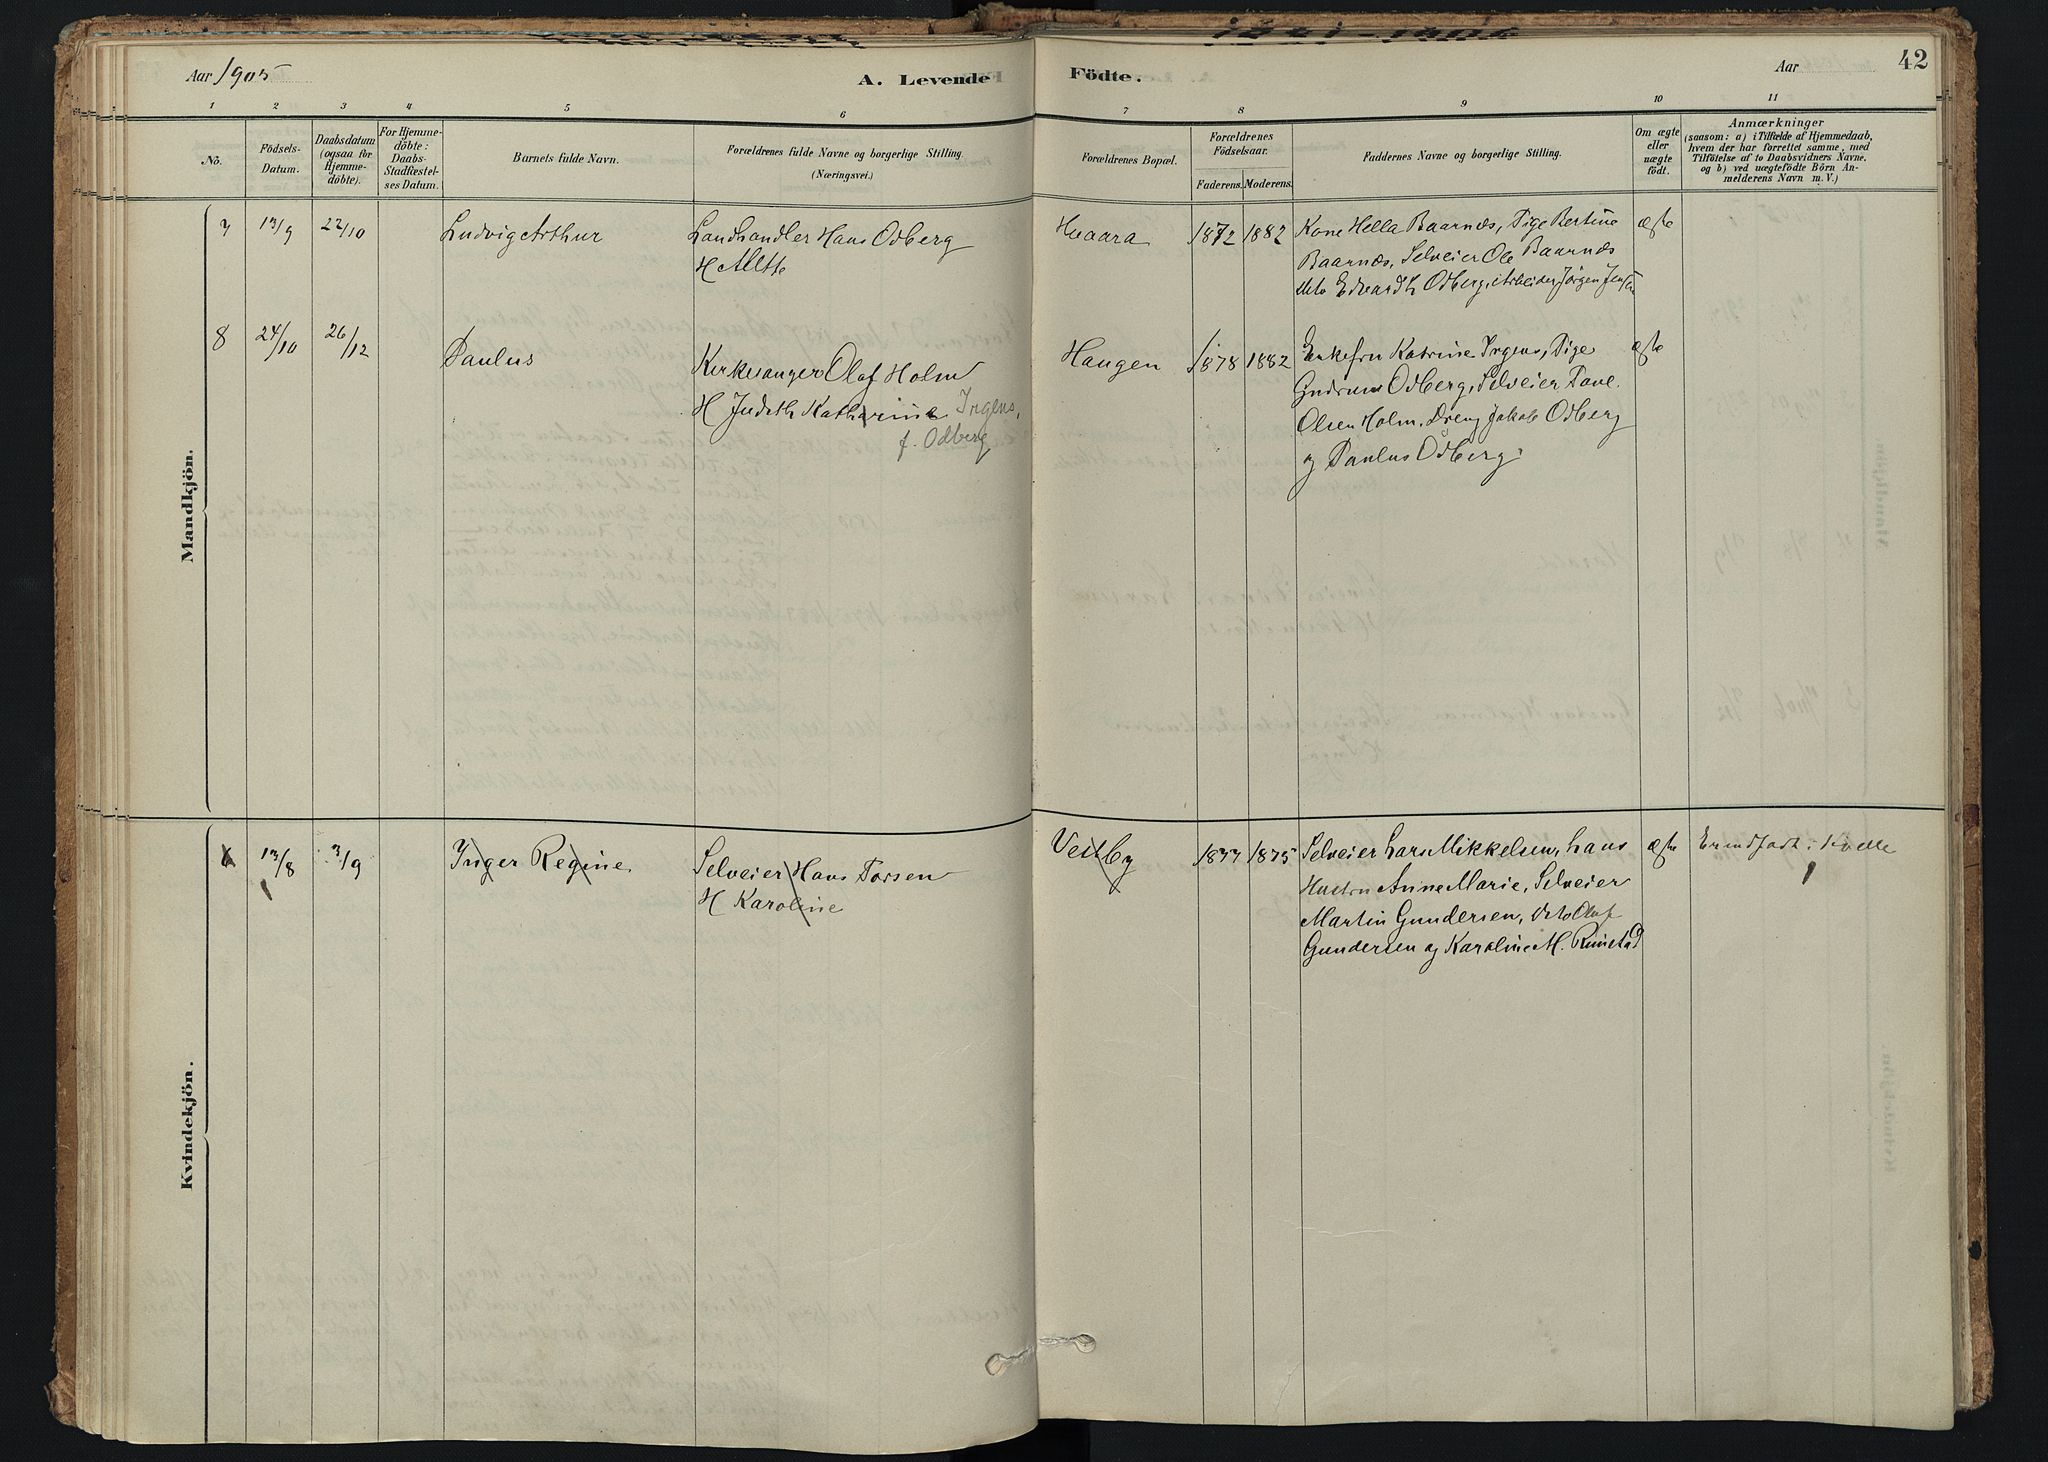 Aar 1905
A. Levende
Födte.
Aar
42
1 2 3 4 5 6 7 8 9 10 11
Nö.
Födsels-
Datum.
Daabsdatum
(ogsaa for
Hjemme-
döbte).
For Hjemme-
döbte:
Daabs-
Stadfæstel-
ses Datum.
Barnets fulde Navn.
Forældrenes fulde Navne og borgerlige Stilling.
(Næringsvei.)
Forældrenes Bopæl.
Forældrenes
Födselsaar.
Faderens. Moderens.
Faddernes Navne og borgerlige Stilling.
Om ægte
eller
uægte
födt.
Anmærkninger
(saasom: a) i Tilfælde af Hjemmedaab,
hvem der har forrettet samme, med
Tilföielse af to Daabsvidners Navne,
og b) ved uægtefödte Börn An-
melderens Navn m. V.)
Mandkjön.
7 13/9 22/10 Ludvig Arthur Landhandler Hans Odberg
H Alette
Haaara 1872 1882 Kone Hella Baarnæs, Pige Bertine
Baarnæs, Selveier Ole Baarnæs
dito Edvard L Odberg, Arbeider Jörgen Jensen
ægte
8 24/10 26/12 Paulus Kirkesanger Olaf Holm
H Judith Katharine Irgens,
f. Odberg
Haugen 1878 1882 Enkefru Katrine Irgens, Pige
Gudrun Odberg, Selveier Tave
Olsen Holm, Dreng Jakob Odberg
og Paulus Odberg.
ægte
Kvindekjön.
6 13/8 3/9 Inger Regine Selveier Hans Torsen
H Karoline
Vestby 1877 1875 Selveier Lars Mikkelsen, hans
Hustru Anne Marie, Selveier
Martin Gundersen, dito Olaf
Gundersen og Karoline M. Rimstad
ægte
Er indført i